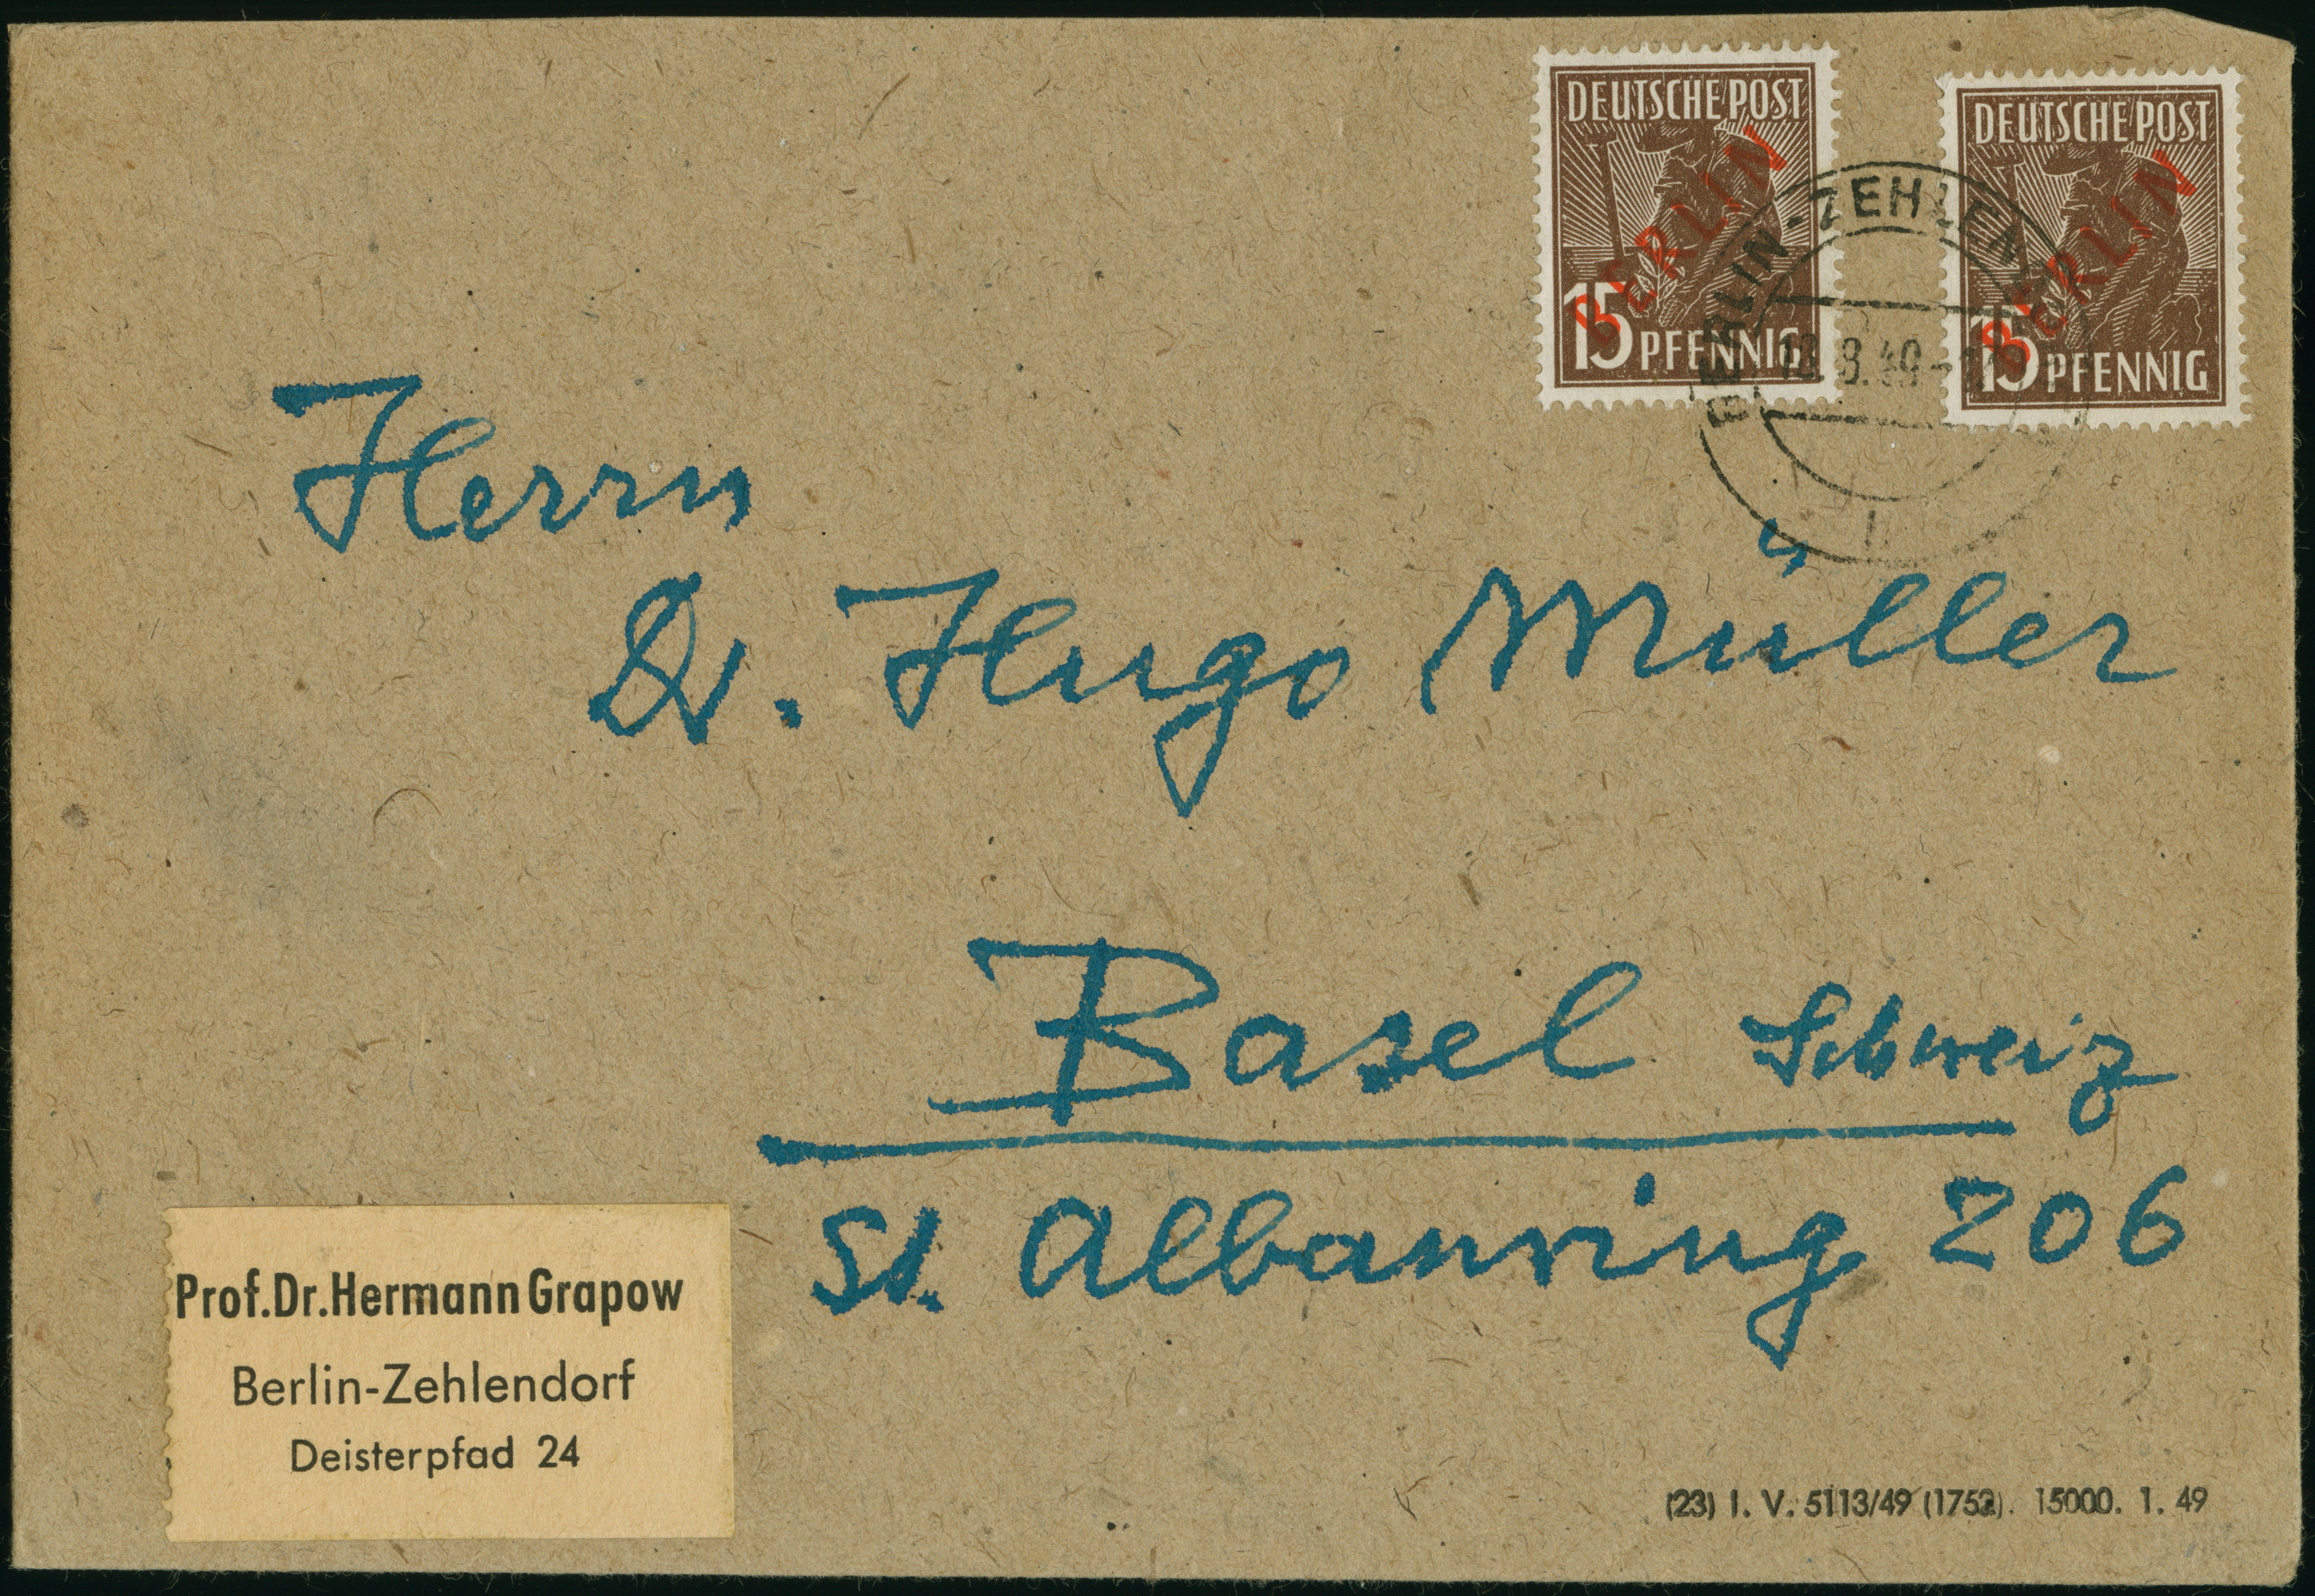 DEUTSCHE POST
BERLIN
15 PFENNIG
DEUTSCHE POST
BERLIN
15 PFENNIG
BERLIN-ZEHLEN
Herrn
Dr. Hugo Müller
Basel Schweiz
St. Albanring 206
Prof. Dr. Hermann Grapow
Berlin-Zehlendorf
Deisterpfad 24
(23) I. V. 5113/49 (1752). 15000. 1. 49